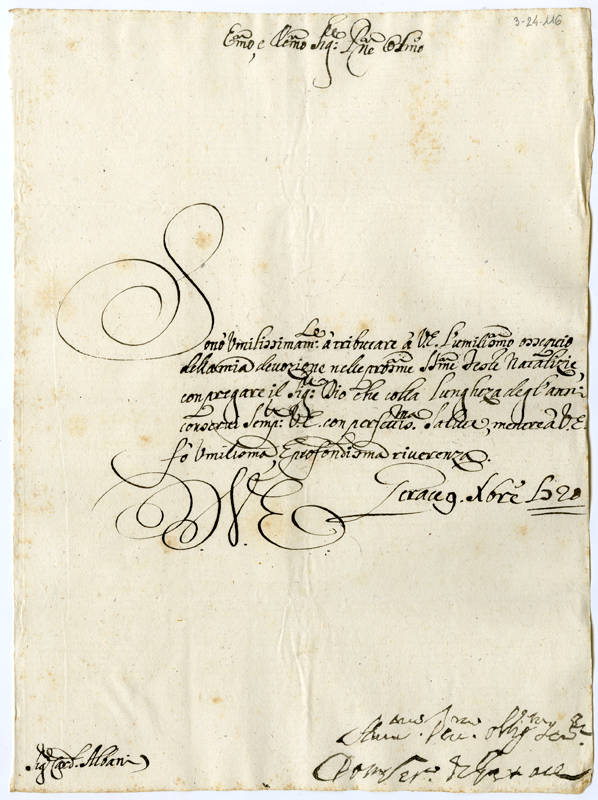 3-24-116
Emo, e Rmo Sig:re Pne Olmo
Sono Umilissimam:te à tributare à V.E. l'umilissmo ossequio
della mia devozione nelle prossime Stme feste Natalizie,
con pregare il Sig:re Dio, che colla lunghezza degl'anni
conservi Semp: V.E. con perfettis:ma Salute, mentre à V.E.
fò Umilissma, e profondissma riverenza.
D. V. E.
Gerace 9. Xbre
Sig:r Card. Albani